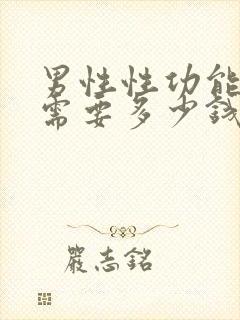 男性性功能
需要多少钱
嚴志銘